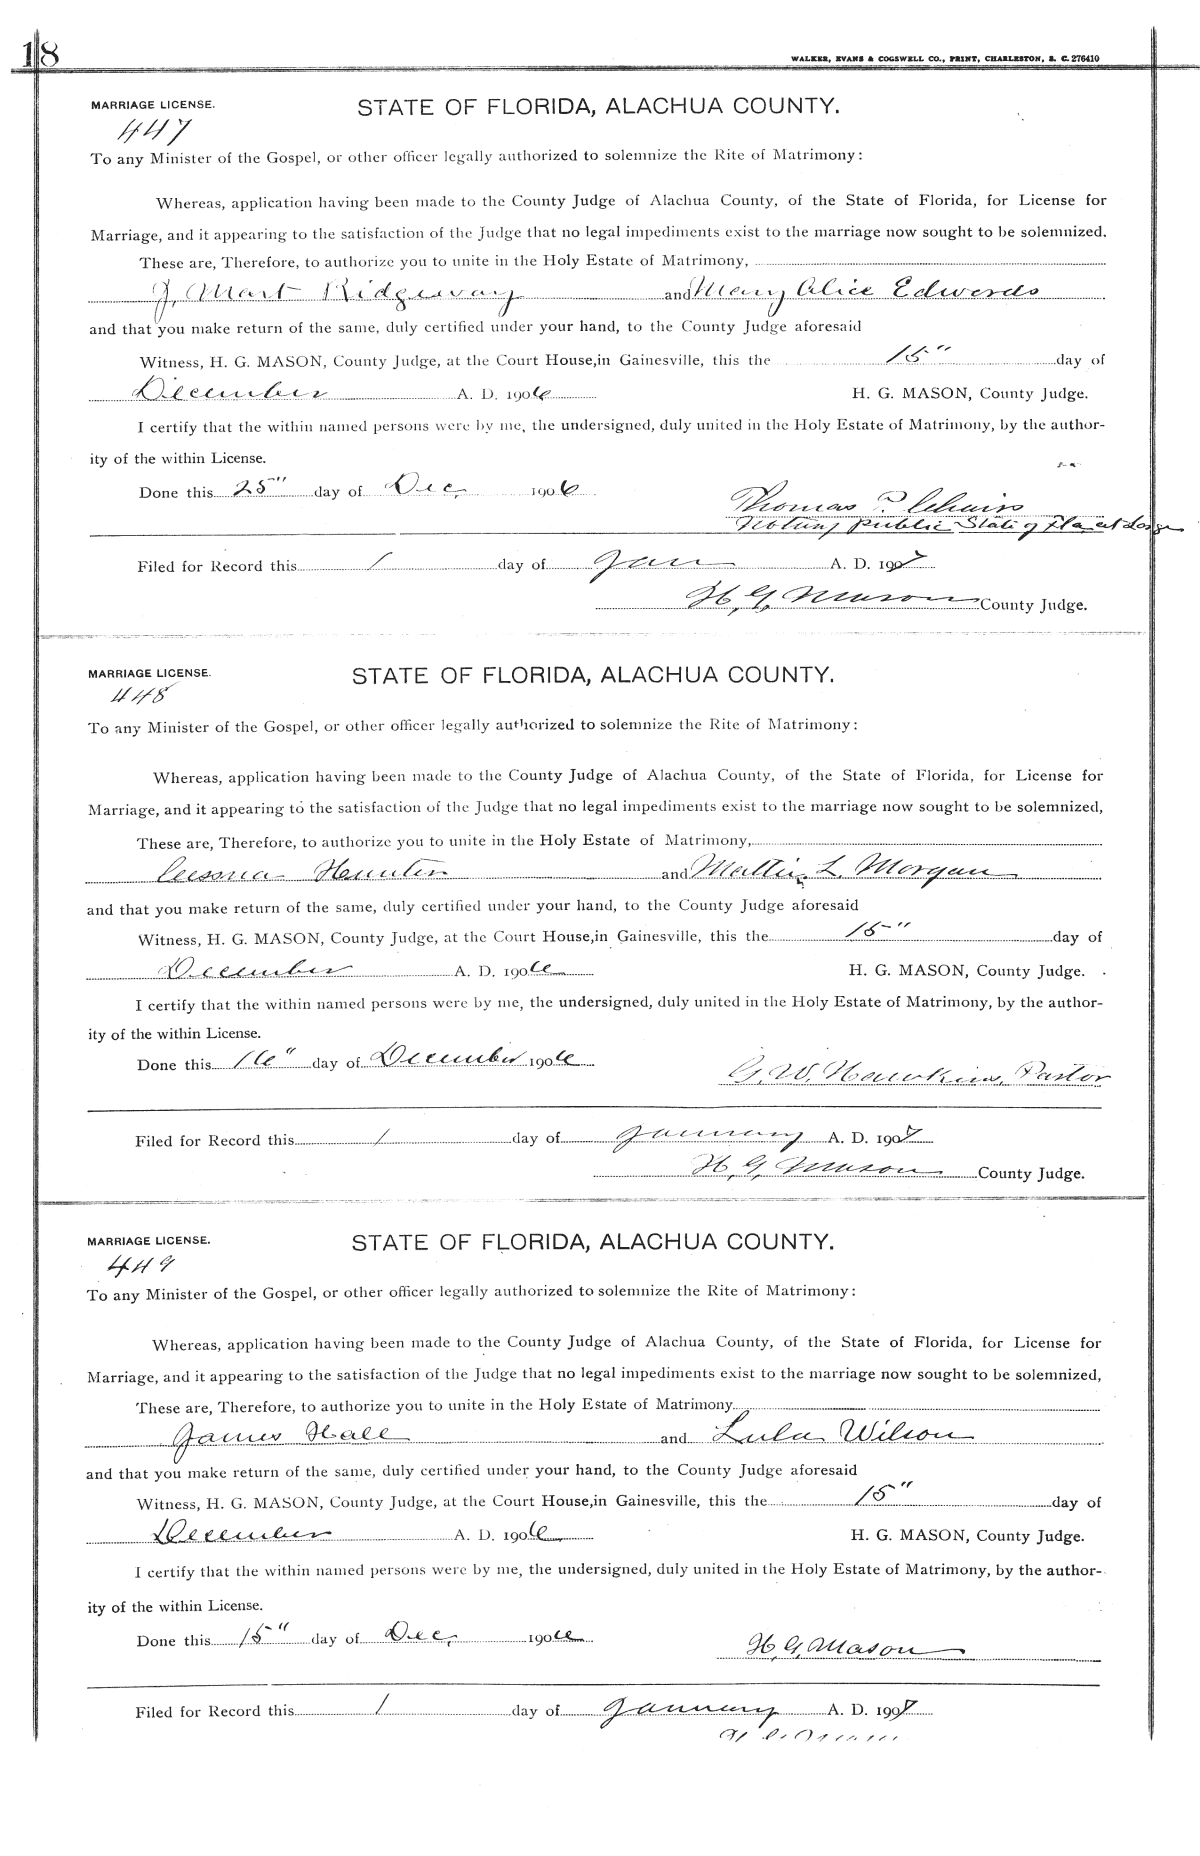 18
WALKER, EVANS & COGSWELL CO., PRINT, CHARLESTON, S. C. 276410
MARRIAGE LICENSE. STATE OF FLORIDA, ALACHUA COUNTY.
447
To any Minister of the Gospel, or other officer legally authorized to solemnize the Rite of Matrimony:
Whereas, application having been made to the County Judge of Alachua County, of the State of Florida, for License for
Marriage, and it appearing to the satisfaction of the Judge that no legal impediments exist to the marriage now sought to be solemnized.
These are, Therefore, to authorize you to unite in the Holy Estate of Matrimony,
J. Mart Ridgeway and Mary Alice Edwards
and that you make return of the same, duly certified under your hand, to the County Judge aforesaid
Witness, H. G. MASON, County Judge, at the Court House, in Gainesville, this the 15" day of
December A. D. 1906 H. G. MASON, County Judge.
I certify that the within named persons were by me, the undersigned, duly united in the Holy Estate of Matrimony, by the author-
ity of the within License.
Done this 25" day of Dec. 1906
Thomas P.
Notary Public State of Fla. at Large
Filed for Record this 1 day of Jan A. D. 1907
H. G. Mason County Judge.
MARRIAGE LICENSE. STATE OF FLORIDA, ALACHUA COUNTY.
448
To any Minister of the Gospel, or other officer legally authorized to solemnize the Rite of Matrimony:
Whereas, application having been made to the County Judge of Alachua County, of the State of Florida, for License for
Marriage, and it appearing to the satisfaction of the Judge that no legal impediments exist to the marriage now sought to be solemnized,
These are, Therefore, to authorize you to unite in the Holy Estate of Matrimony,
Hunter and Mattie L. Morgan
and that you make return of the same, duly certified under your hand, to the County Judge aforesaid
Witness, H. G. MASON, County Judge, at the Court House, in Gainesville, this the 15" day of
December A. D. 1906 H. G. MASON, County Judge.
I certify that the within named persons were by me, the undersigned, duly united in the Holy Estate of Matrimony, by the author-
ity of the within License.
Done this 16" day of December 1906
G. W. Hawkins, Pastor
Filed for Record this 1 day of January A. D. 1907
H. G. Mason County Judge.
MARRIAGE LICENSE. STATE OF FLORIDA, ALACHUA COUNTY.
449
To any Minister of the Gospel, or other officer legally authorized to solemnize the Rite of Matrimony:
Whereas, application having been made to the County Judge of Alachua County, of the State of Florida, for License for
Marriage, and it appearing to the satisfaction of the Judge that no legal impediments exist to the marriage now sought to be solemnized,
These are, Therefore, to authorize you to unite in the Holy Estate of Matrimony
James Hall and Lula Wilson
and that you make return of the same, duly certified under your hand, to the County Judge aforesaid
Witness, H. G. MASON, County Judge, at the Court House, in Gainesville, this the 15" day of
December A. D. 1906 H. G. MASON, County Judge.
I certify that the within named persons were by me, the undersigned, duly united in the Holy Estate of Matrimony, by the author-
ity of the within License.
Done this 15" day of Dec. 1906
H. G. Mason
Filed for Record this 1 day of January A. D. 1907